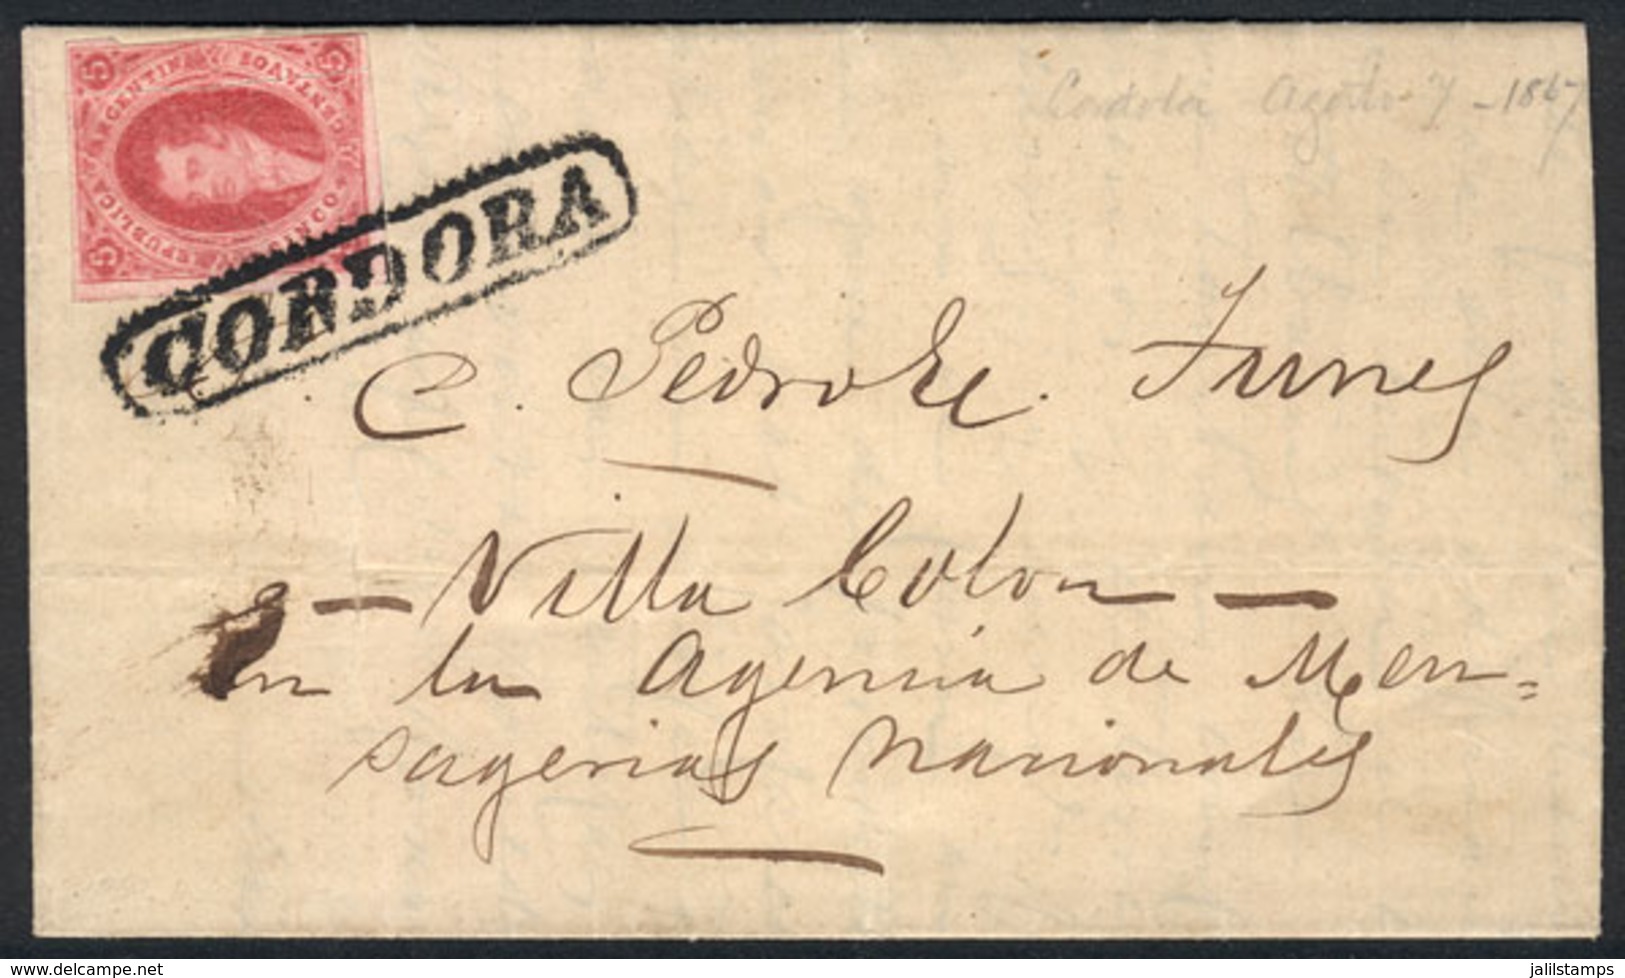 Cordoba Agosto 7 - 1867
5 5 5
REPUBLICA ARGENTINA
CENTAVOS
CINCO
CORDOBA
C. Pedro Funes
— Villa Colon —
en la Agencia de Men=
sagerias Nacionales
www.delcampe.net
jalilstamps